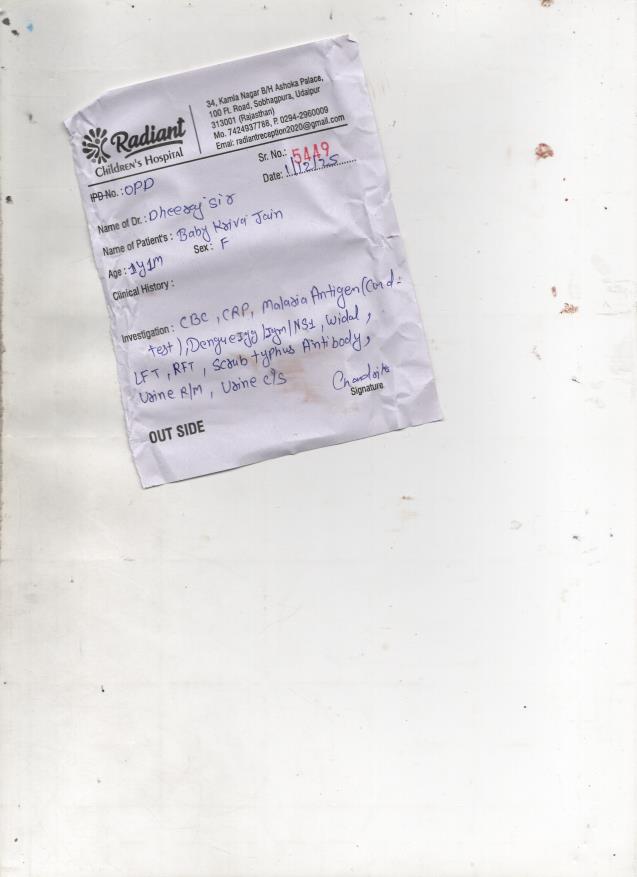 Radiant
Children's Hospital
34, Kamla Nagar B/H Ashoka Palace,
100 Ft. Road, Sobhagpura, Udaipur
313001 (Rajasthan)
Mo. 7424937788, P. 0294-2960009
Emai: radiantreception2020@gmail.com
Sr. No.: 5449
IPD No. : OPD
Date: 1/12/25
Name of Dr. : Dheeraj sir
Name of Patient's : Baby Kriva Jain
Age : 1Y1M Sex : F
Clinical History :
Investigation : CBC, CRP, Malaria Antigen (Card-
test), Dengue IgG/IgM/NS1, Widal,
LFT, RFT, Scrub typhus Antibody,
Urine R/M, Urine c/s
Signature
OUT SIDE